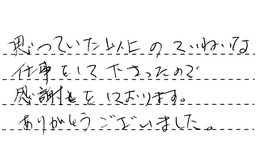 思っていた以上にのていねいな
仕事をして下さったので
感謝をしております。
ありがとうございました。